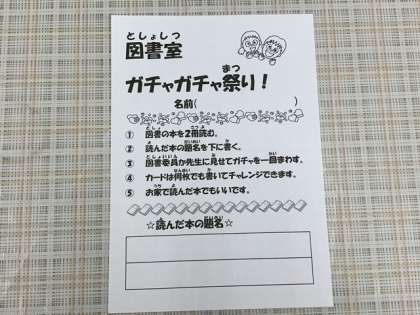 図書室
ガチャガチャ祭り!
名前( )
① 図書の本を2冊読む。
② 読んだ本の題名を下に書く。
③ 図書委員か先生に見せてガチャを一回まわす。
④ カードは何枚でも書いてチャレンジできます。
⑤ お家で読んだ本でもいいです。
☆読んだ本の題名☆